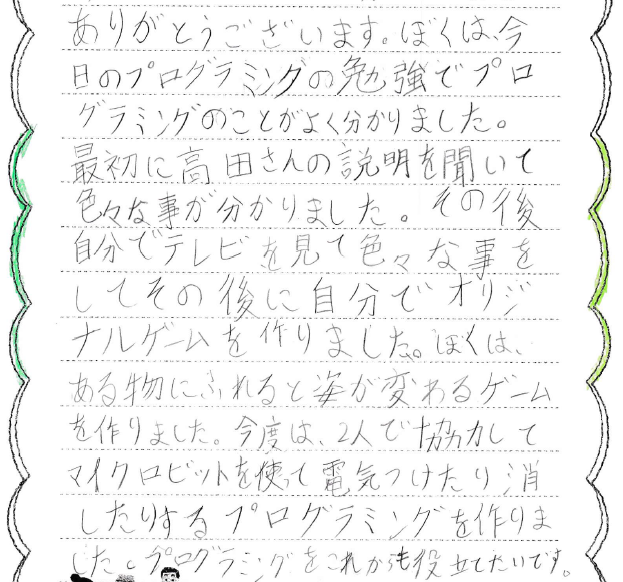 ありがとうございます。ぼくは、今
日のプログラミングの勉強でプロ
グラミングのことがよく分かりました。
最初に高田さんの説明を聞いて
色々な事が分かりました。その後
自分でテレビを見て色々な事を
してその後に自分でオリジ
ナルゲームを作りました。ぼくは、
ある物にふれると姿が変わるゲーム
を作りました。今度は、2人で協力して
マイクロビットを使って電気つけたり消
したりするプログラミングを作りま
した。プログラミングをこれからも役立てたいです。